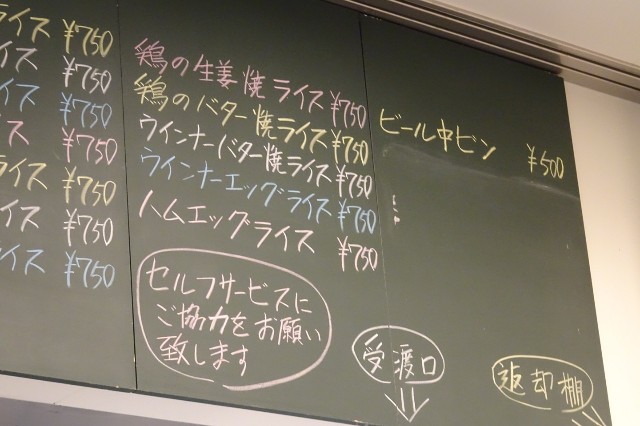 ライス ¥750
イス ¥750
イス ¥750
ス ¥750
ライス ¥750
イス ¥750
イス ¥750
鶏の生姜焼ライス ¥750
鶏のバター焼ライス ¥750
ウインナーバター焼ライス ¥750
ウインナーエッグライス ¥750
ハムエッグライス ¥750
セルフサービスに
ご協力をお願い
致します
ビール中ビン ¥500
受渡口
返却棚